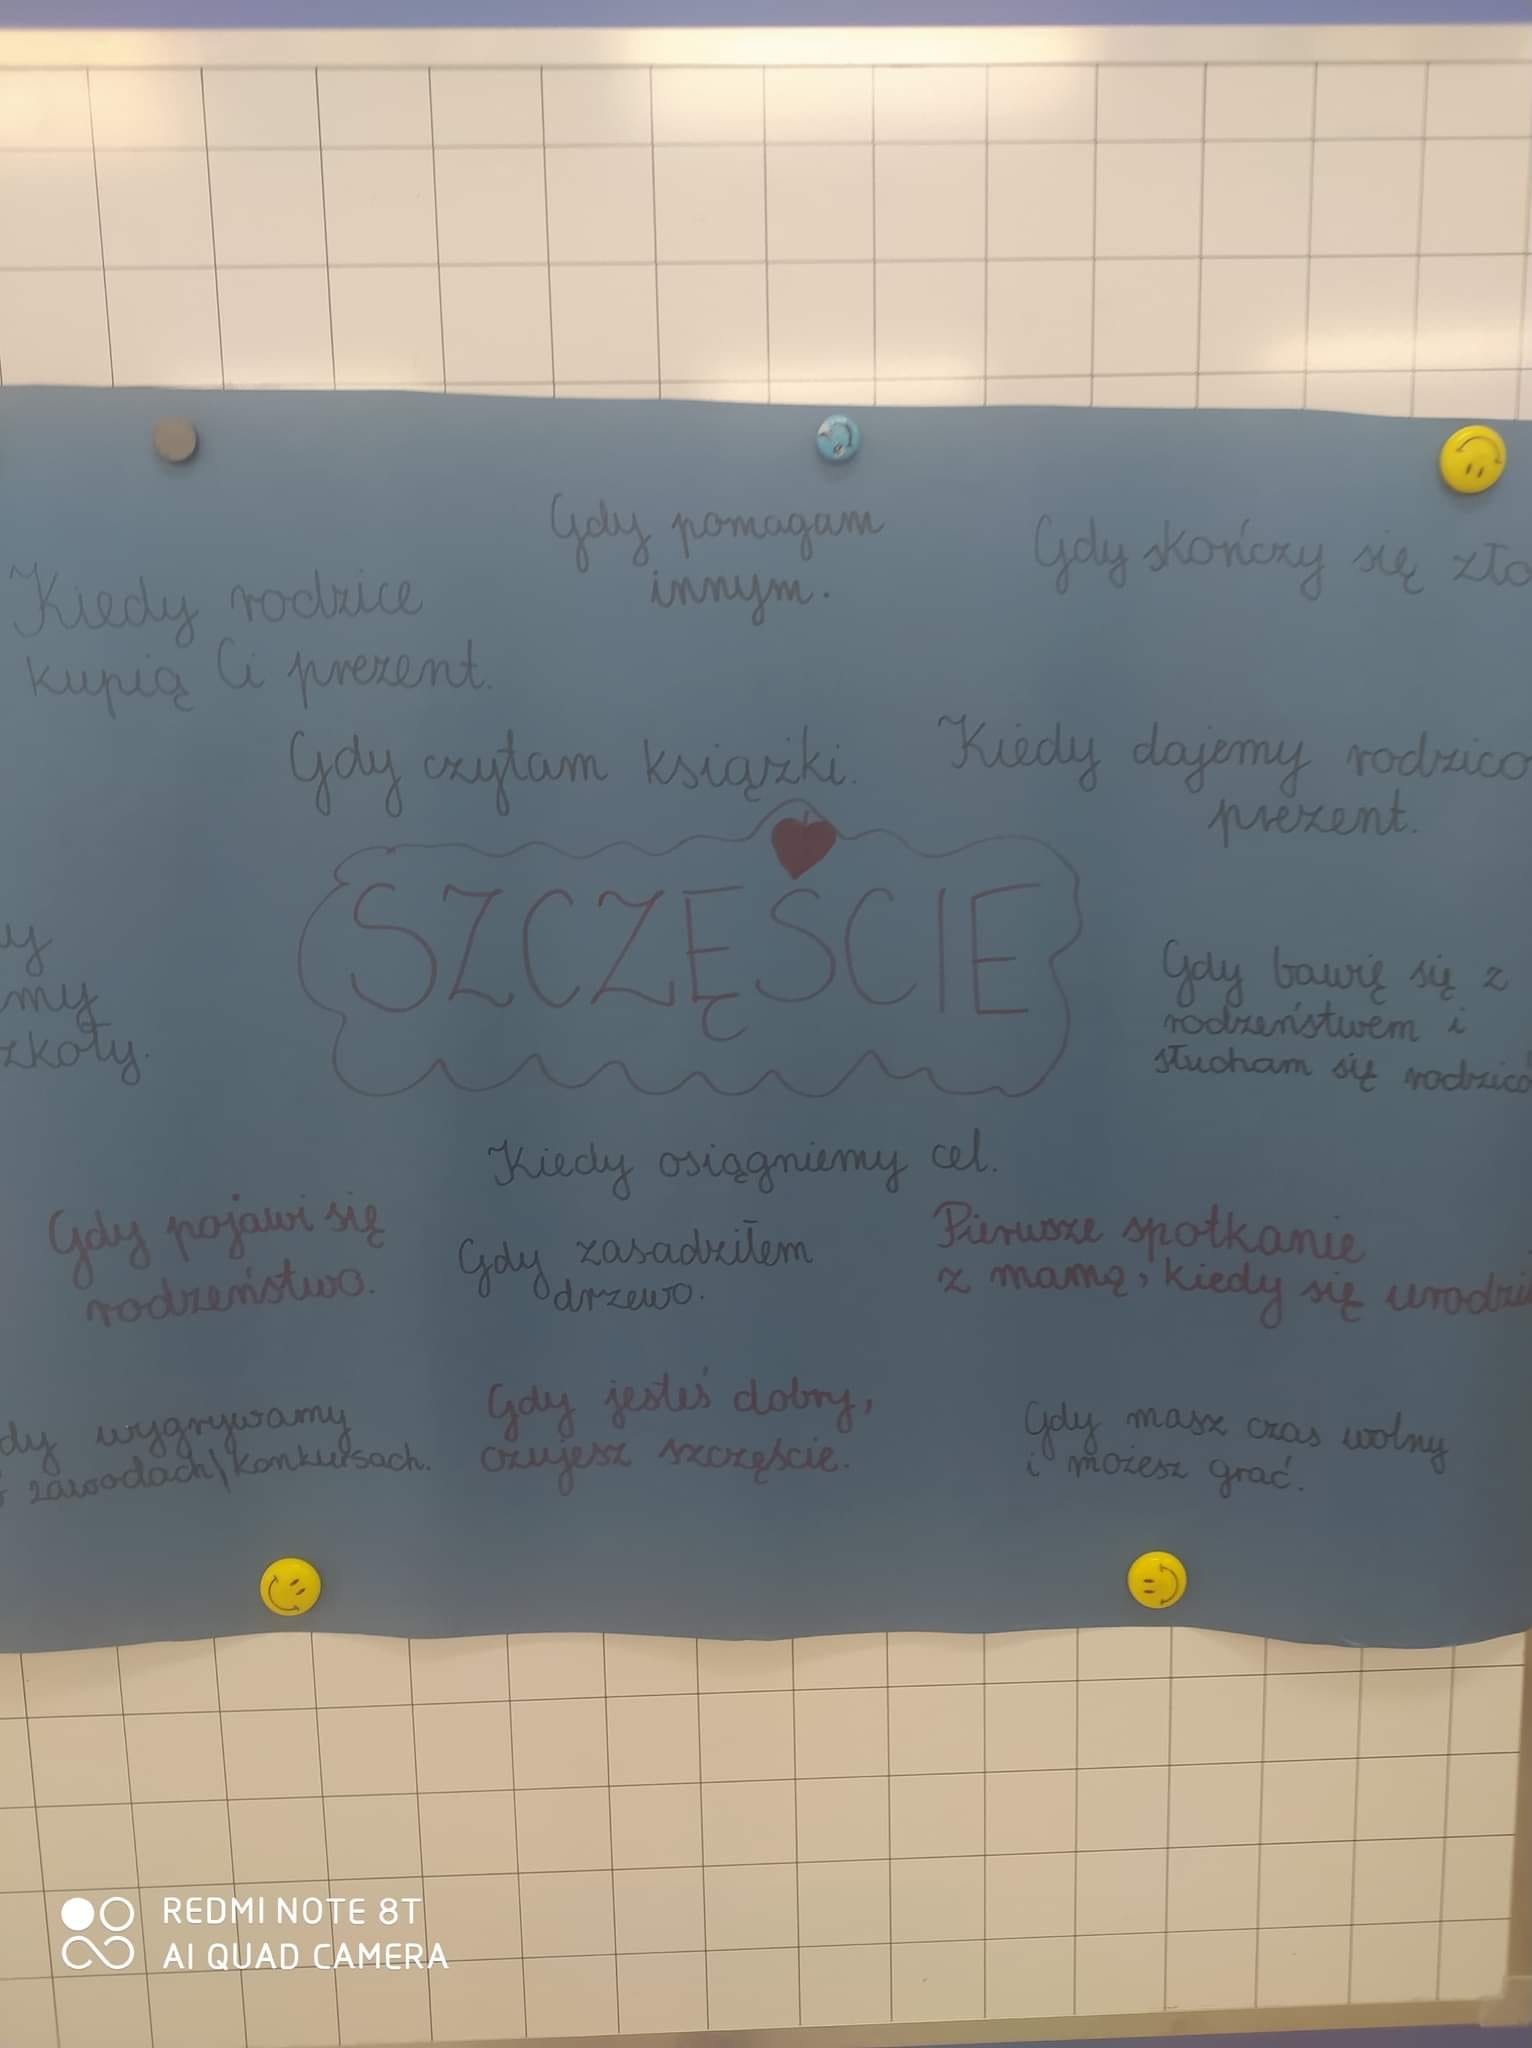 Gdy pomagam
innym.
Gdy skończy się zło
Kiedy rodzice
kupią Ci prezent.
Gdy czytam książki.
Kiedy dajemy rodzico
prezent.
SZCZĘŚCIE
y
my
zkoły.
Gdy bawię się z
rodzeństwem i
słucham się rodzicó
Kiedy osiągniemy cel.
Gdy pojawi się
rodzeństwo.
Gdy zasadziłem
drzewo.
Pierwsze spotkanie
z mamą, kiedy się urodzi
dy wygrywamy
zawodach/konkursach.
Gdy jesteś dobry,
czujesz szczęście.
Gdy masz czas wolny
i możesz grać.
REDMI NOTE 8T
AI QUAD CAMERA